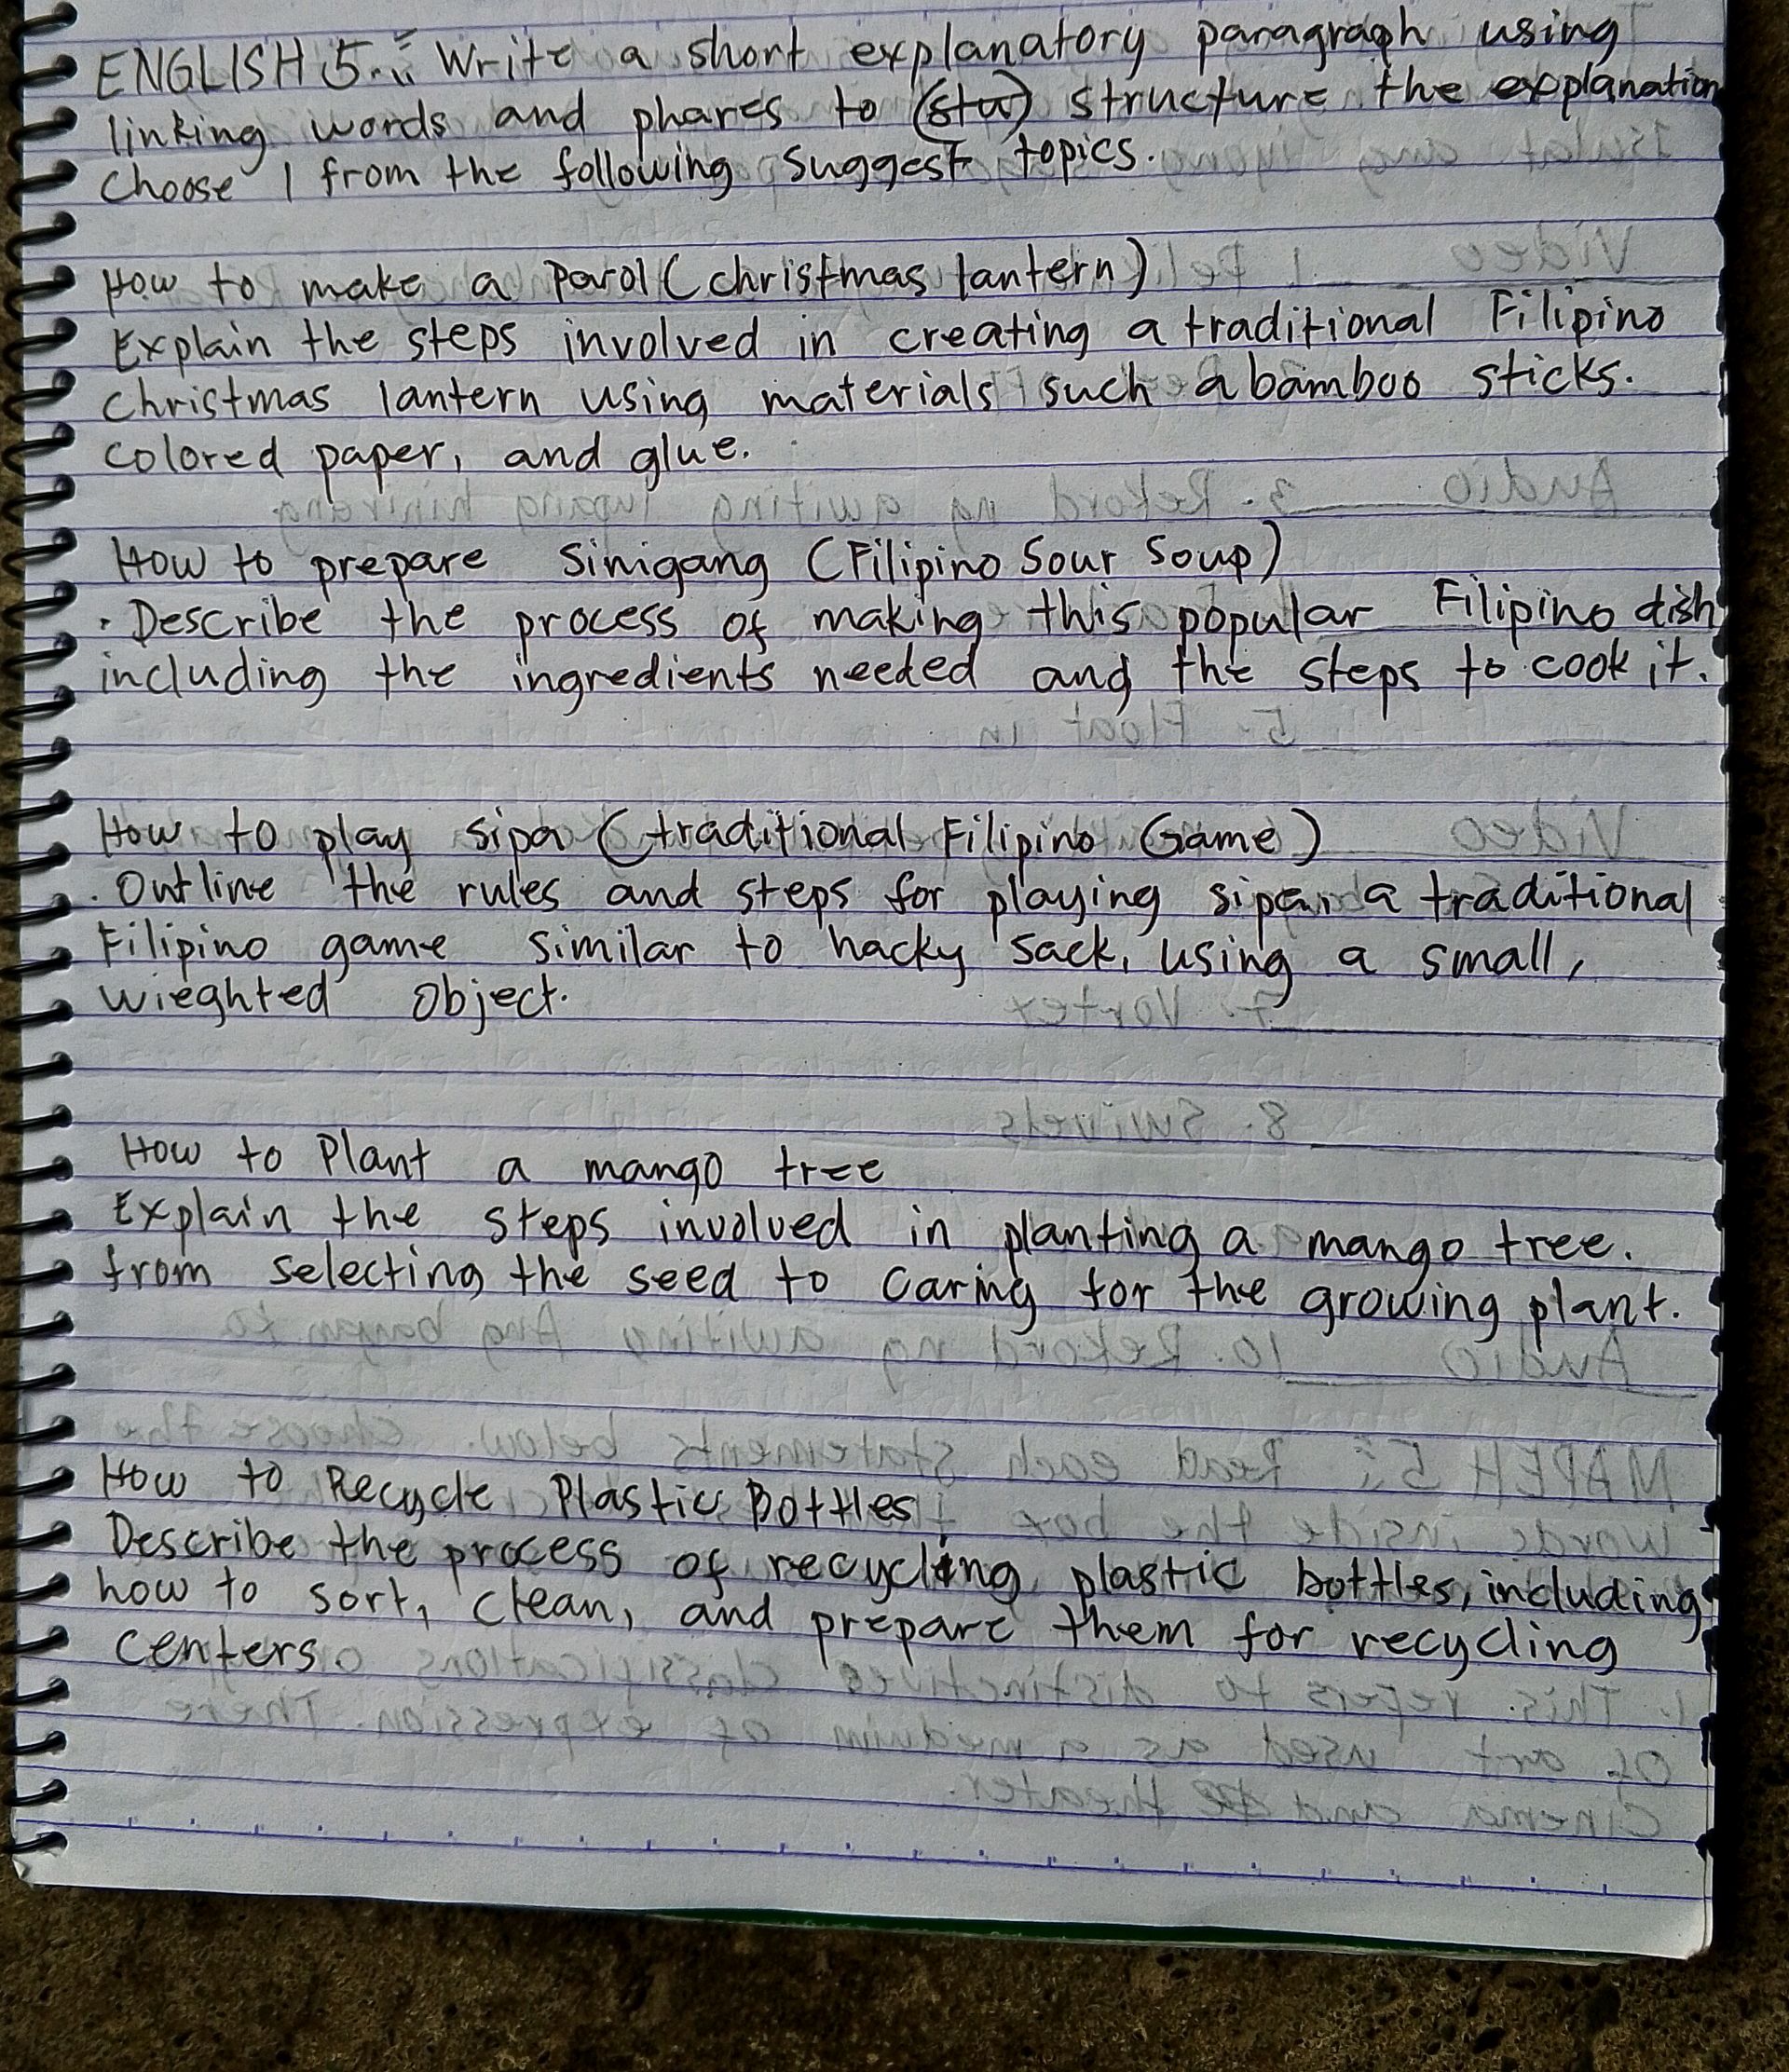 ENGLISH 5.: Write a short explanatory paragraph using
linking words and phares to (stu) structure the explanation
Choose 1 from the following Suggest topics.
How to make a Parol (christmas lantern)
Explain the steps involved in creating a traditional Filipino
christmas lantern using materials such a bamboo sticks.
colored paper, and glue.
How to prepare Sinigang (Filipino Sour Soup)
. Describe the process of making this popular Filipino dish
including the ingredients needed and the steps to cook it.
How to play sipa (traditional Filipino Game)
. Outline the rules and steps for playing sipa, a traditional
Filipino game similar to hacky sack, using a small,
wieghted object.
How to Plant a mango tree
Explain the steps involved in planting a mango tree.
from selecting the seed to caring for the growing plant.
How to Recycle Plastic Bottles
Describe the process of recycling plastic bottles, including
how to sort, clean, and prepare them for recycling
centers.